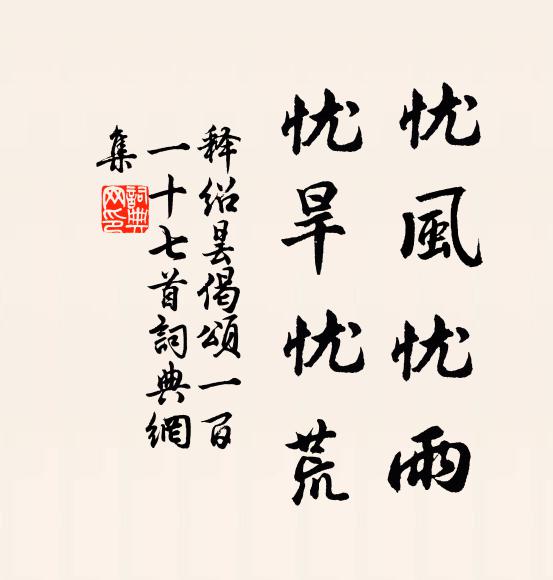 忧風忧雨
忧旱忧荒
释绍昙偈頌一百
一十七首詞典網
集
詞典
网印